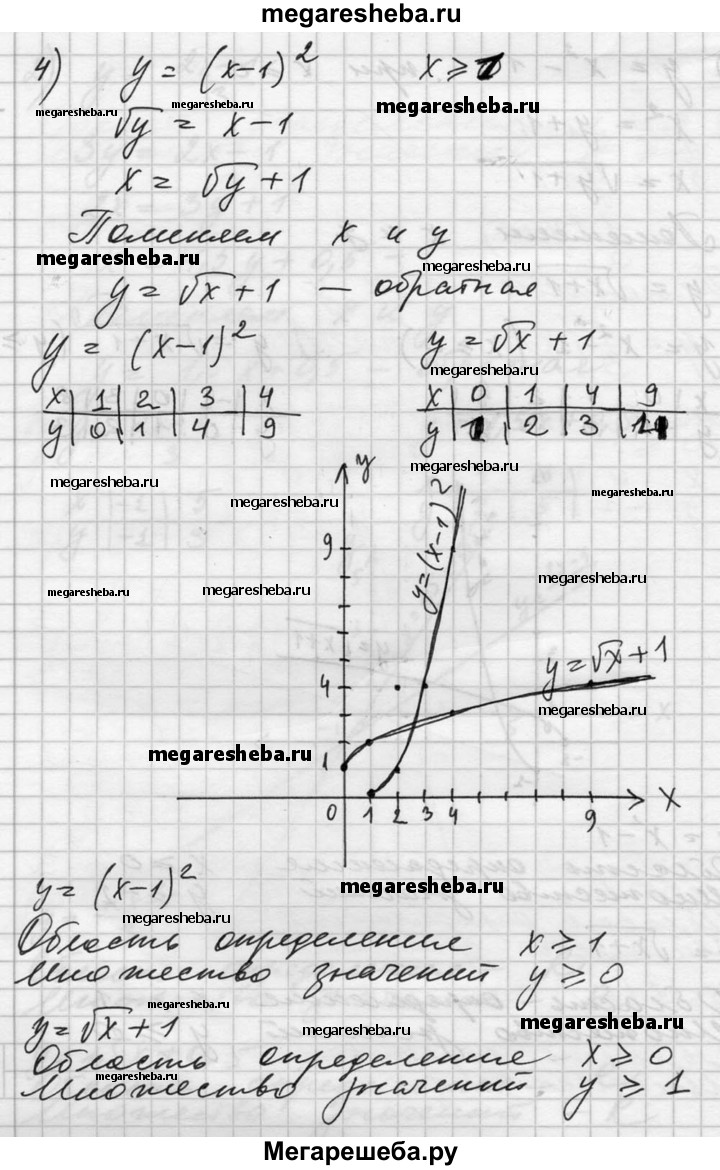 megaresheba.ru
4) y = (x-1)² x ⩾ 1
megaresheba.ru megaresheba.ru megaresheba.ru
√y = x-1
x = √y + 1
Поменяем x и y
megaresheba.ru megaresheba.ru
y = √x + 1 — обратная
y = (x-1)² y = √x + 1
megaresheba.ru
x | 1 | 2 | 3 | 4 x | 0 | 1 | 4 | 9
y | 0 | 1 | 4 | 9 y | 1 | 2 | 3 |
megaresheba.ru
megaresheba.ru y megaresheba.ru
megaresheba.ru
y=(x-1)²
9
megaresheba.ru
megaresheba.ru megaresheba.ru
y=√x+1
4
megaresheba.ru
megaresheba.ru
1
0 1 2 3 4 9 x
y = (x-1)²
megaresheba.ru
megaresheba.ru
Область определение x ⩾ 1
Множество значений y ⩾ 0
megaresheba.ru
y = √x + 1 megaresheba.ru megaresheba.ru
Область определение x ⩾ 0
megaresheba.ru
Множество значений y ⩾ 1
Мегарешеба.ру